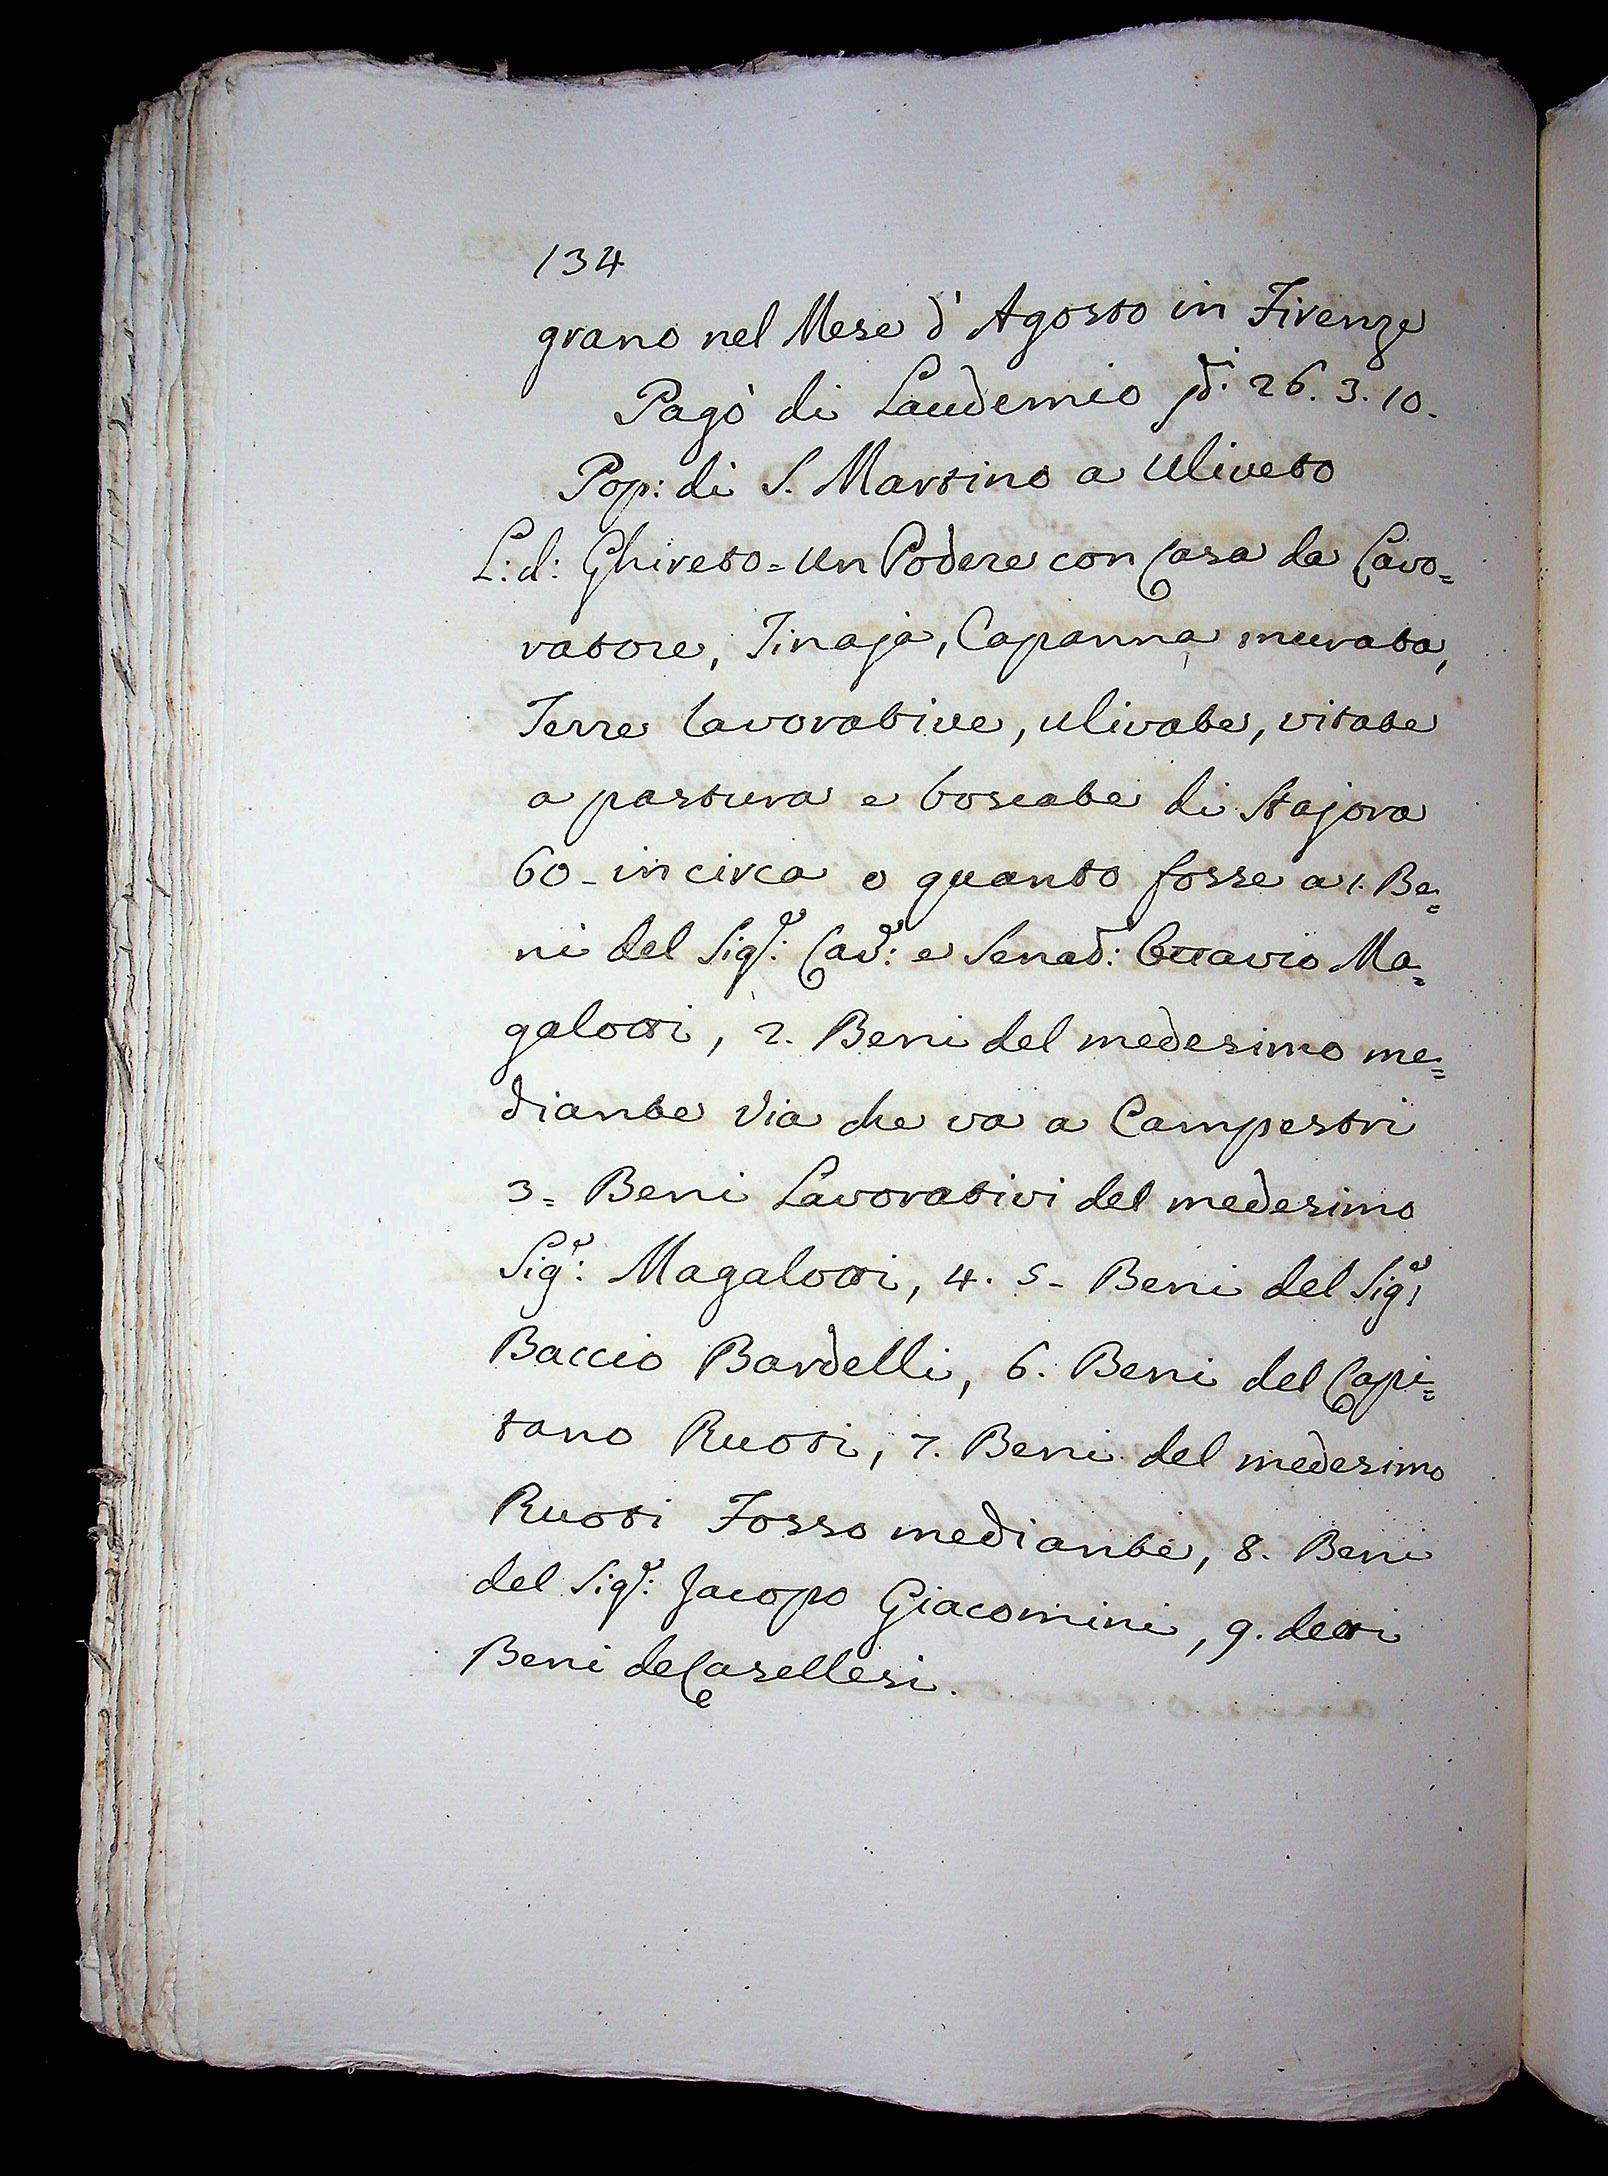 134
grano nel Mese d'Agosto in Firenze
Pagò di Laudemio 26.3.10.
Pop: di S. Martino a Uliveto
L: d: Ghireto = Un Podere con Casa da Lavo=
ratore, Tinaja, Capanna murata,
Terre lavorative, ulivate, vitate
a pastura e boscate di Stajora
60 - in circa o quanto fosse a 1. Be=
ni del Sigr: Cavr: e Senatr: Ottavio Ma=
galotti, 2. Beni del medesimo me=
diante Via che va a Campestri
3 = Beni Lavorativi del medesimo
Sigr: Magalotti, 4. 5 - Beni del Sigr:
Baccio Bardelli, 6. Beni del Capi=
tano Ruoti, 7. Beni del medesimo
Ruoti Fosso mediante, 8. Beni
del Sigr: Jacopo Giacomini, 9. detti
Beni de Casellesi.